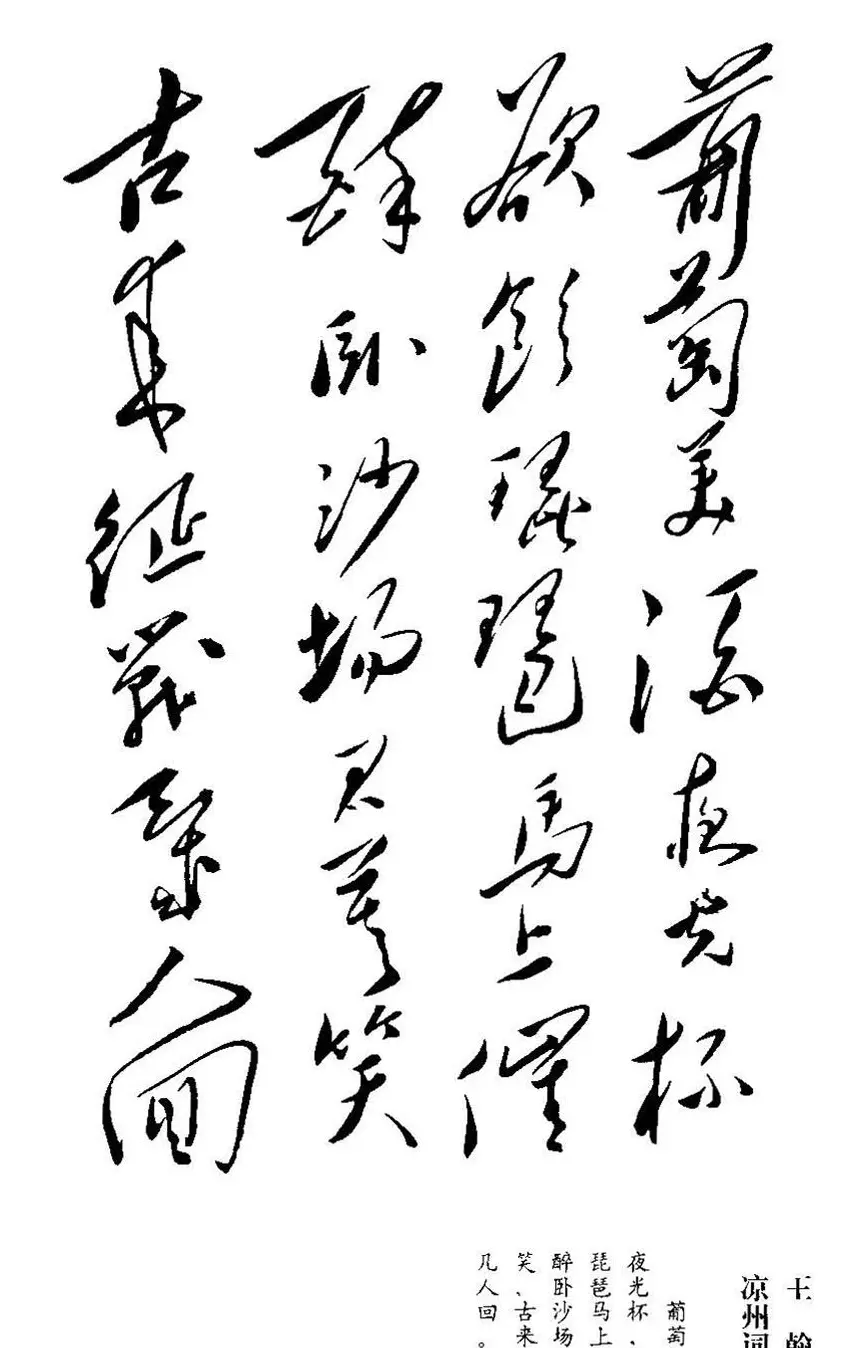 葡萄美酒夜光杯
欲饮琵琶马上催
醉卧沙场君莫笑
古来征战几人回
王翰
凉州词
葡萄
夜光杯、
琵琶马上
醉卧沙场
笑、古来
几人回。